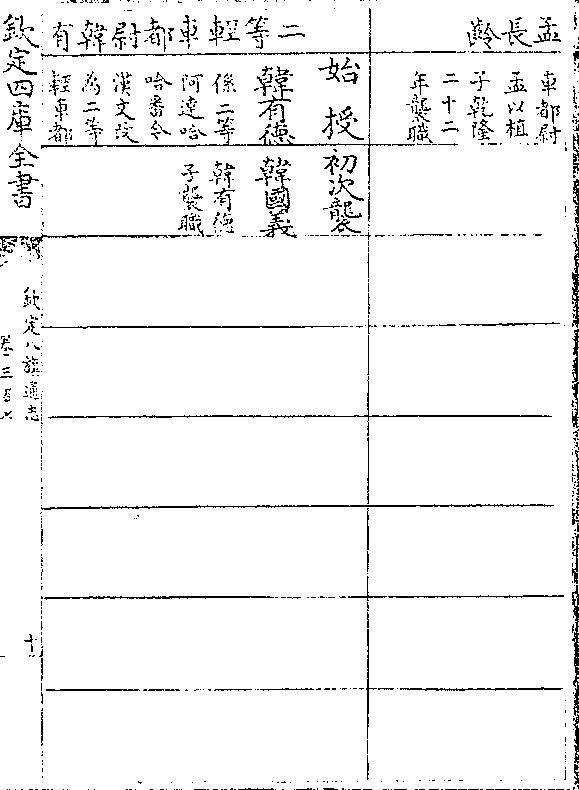 孟長齡
車都尉
孟以植
子乾隆
二十二
年襲職
二等輕車都尉韓有
始授
初次襲
韓有德
係二等
阿達哈
哈番今
漢文改
為二等
輕車都
韓國義
韓有德
子襲職
欽定四庫全書
欽定八旗通志